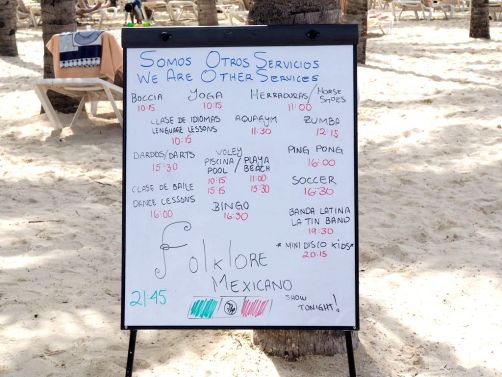 Somos Otros Servicios
We Are Other Services
Boccia Yoga Herraduras/Horse Shoes
10:15 10:15 11:00
Clase de Idiomas Aquagym Zumba
Lenguage Lessons 11:30 12:15
10:15
Dardos/Darts Voley Ping Pong
15:30 Piscina/Playa 16:00
Pool/Beach
10:15 11:00
15:15 15:30
Clase de Baile Soccer
Dance Lessons 16:30
16:00
Bingo
16:30
Banda Latina
La Tin Band
19:30
*Mini Disco Kids*
20:15
Folklore
Mexicano
21:45
Show
Tonight!